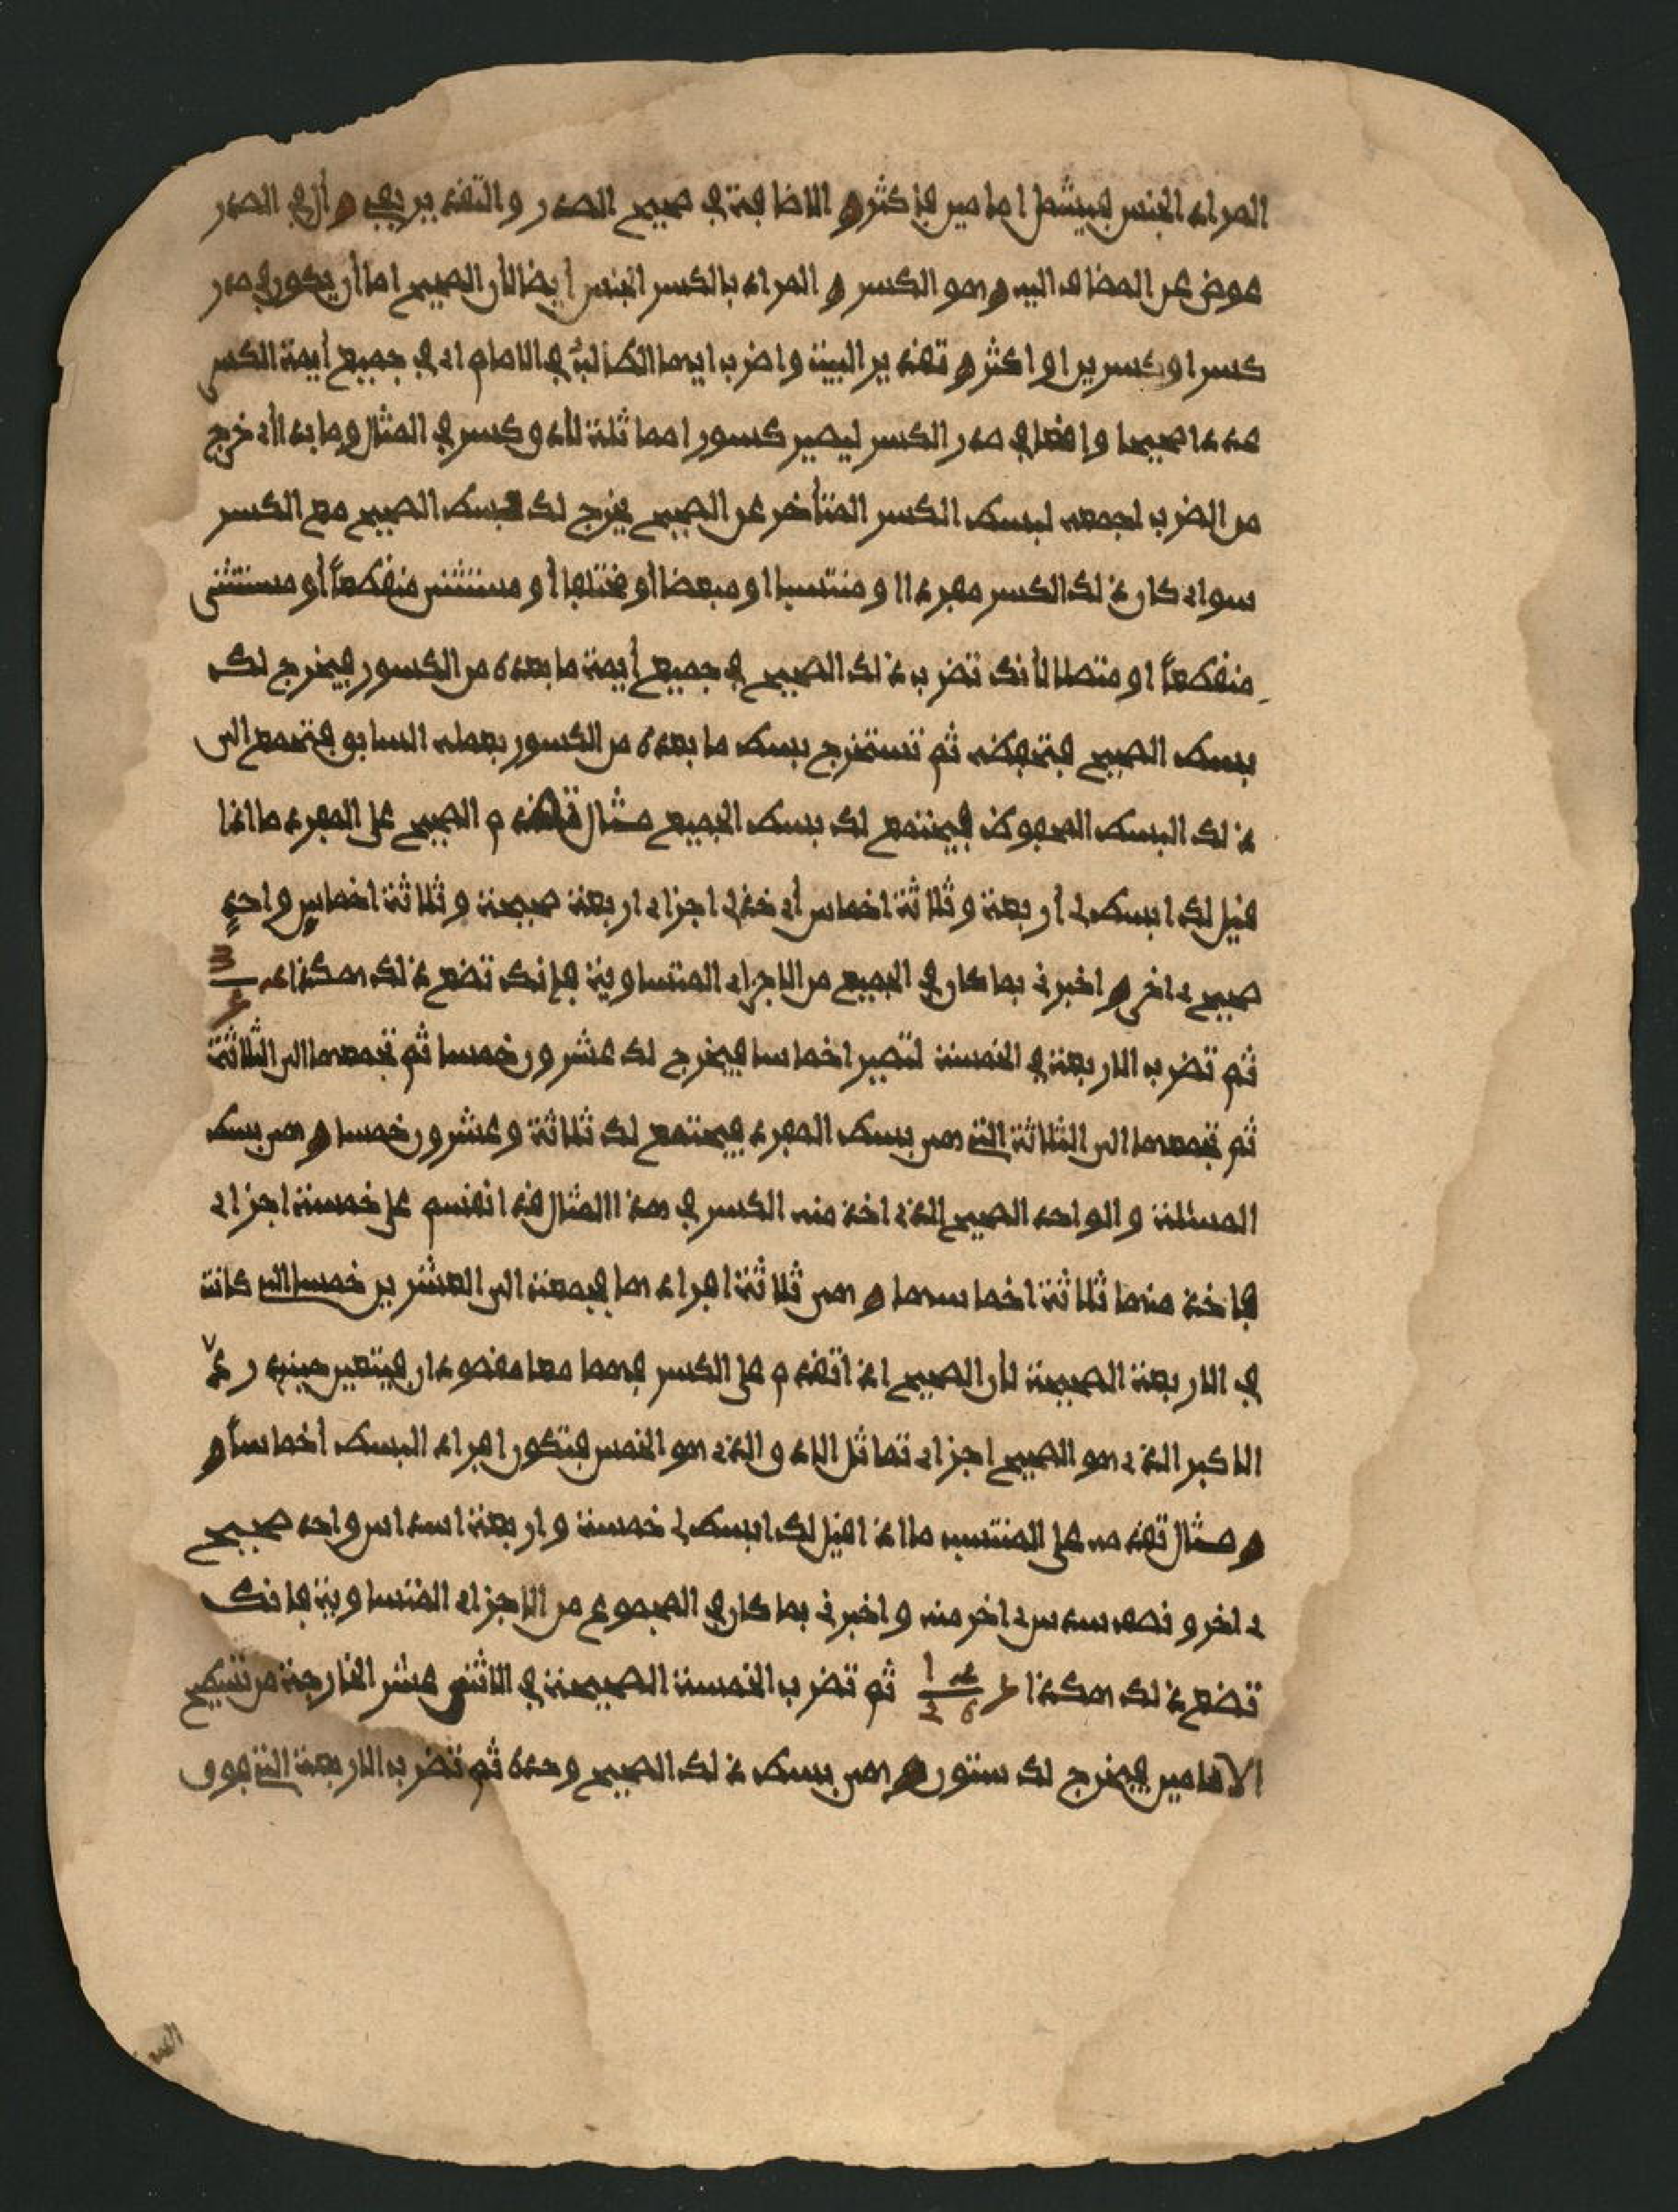 المراد الجنس فيشمل إمامين فأكثر و الاضافة في صحيح الصدر والتقدير بفي و أل في الصدر
عوض عن المضاف اليه و هو الكسر و المراد بالكسر الجنس أيضا لأن الصحيح اما أن يكون في صدر
كسر او كسرين او اكثر و تقدير البيت و اضرب ايها الطالب في الامام اي في جميع أيمة الكسر
عددا صحيحا واقعا في صدر الكسر ليصير كسورا مماثلة لأدو كسر في المثال وما بدا أي خرج
من الضرب اجمعه لبسط الكسر المتأخر عن الصحيح يخرج لك بسط الصحيح مع الكسر
سواء كان ذلك الكسر مفردا او منتسبا او مبعضا أو مختلفا أو مستثنى منقطعاً أو مستثنى
منقطعاً او متصلا لأنك تضرب ذلك الصحيح في جميع أيمة ما بعده من الكسور فيخرج لك
بسط الصحيح فتحفظه ثم تستخرج بسط ما بعده من الكسور بعمله السابق فتجمع الى
ذلك البسط المحفوظ فيجتمع لك بسط الجميع مثال تقدم الصحيح على المفرد ما اذا
قيل لك ابسط لي أربعة وثلاثة اخماس أي خذ لي اجزاء اربعة صحيحة وثلاثة اخماس واحدٍ
صحيح ء اخر و اخبرني بما كان في الجميع من الاجزاء المتساوية فإنك تضع ذلك هكذا
ثم تضرب الاربعة في الخمسة لتصير اخماسا فيخرج لك عشرون خمسا ثم تجمعها الى الثلاثة
ثم تجمعها الى الثلاثة التي هي بسط المفرد فيجتمع لك ثلاثة وعشرون خمسا و هي بسط
المسئلة والواحد الصحيح الذي اخذ منه الكسر في هذا المثال قد انقسم على خمسة اجزاء
فاخذ منها ثلاثة اخماسها و هي ثلاثة افراد ها فجمعت الى العشرين خمسا التي كانت
في الاربعة الصحيحة لأن الصحيح اذا تقدم على الكسر فهما معا مقصودان فيتعين حينئد ردّ
الاكبر الذي هو الصحيح اجزاء تماثل الادو الذي هو الخمس فتكون افراد البسط أخماساً و
و مثال تقدمه على المنتسب ما اذا قيل لك ابسط لي خمسة واربعة اسداس واحد صحيح
ء اخر ونصف سدس ء اخر منه واخبرني بما كان في المجموع من الاجزاء المتساوية فإنك
تضع ذلك هكذا ثم تضرب الخمسة الصحيحة في الاثنى عشر الخارجة من تسطيح
الإمامين فيخرج لك ستون و هي بسط ذلك الصحيح وحده ثم تضرب الاربعة التي فوق